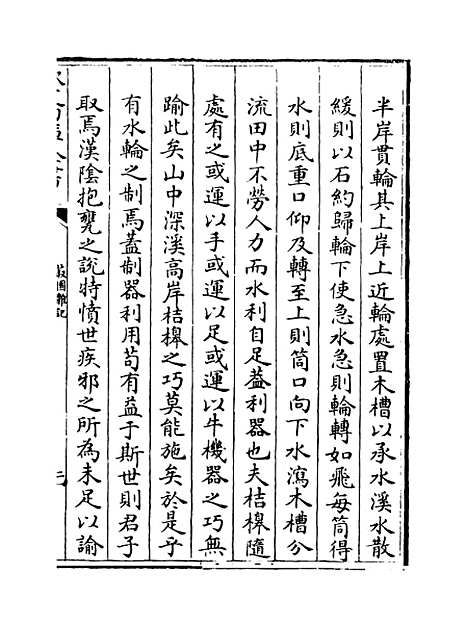 半岸貫輪其上岸上近輪處置木槽以承水溪水散
緩則以石約歸輪下使急水急則輪轉如飛每筒得
水則底重口仰及轉至上則筒口向下水瀉木槽分
流田中不勞人力而水利自足葢利器也夫桔槹隨
處有之或運以手或運以足或運以牛機器之巧無
踰此矣山中深溪高岸桔槹之巧莫能施矣於是乎
有水輪之制焉蓋制器利用苟有益于斯世則君子
取焉漢陰抱甕之說特憤世疾邪之所為未足以諭
蔬園雜記
三